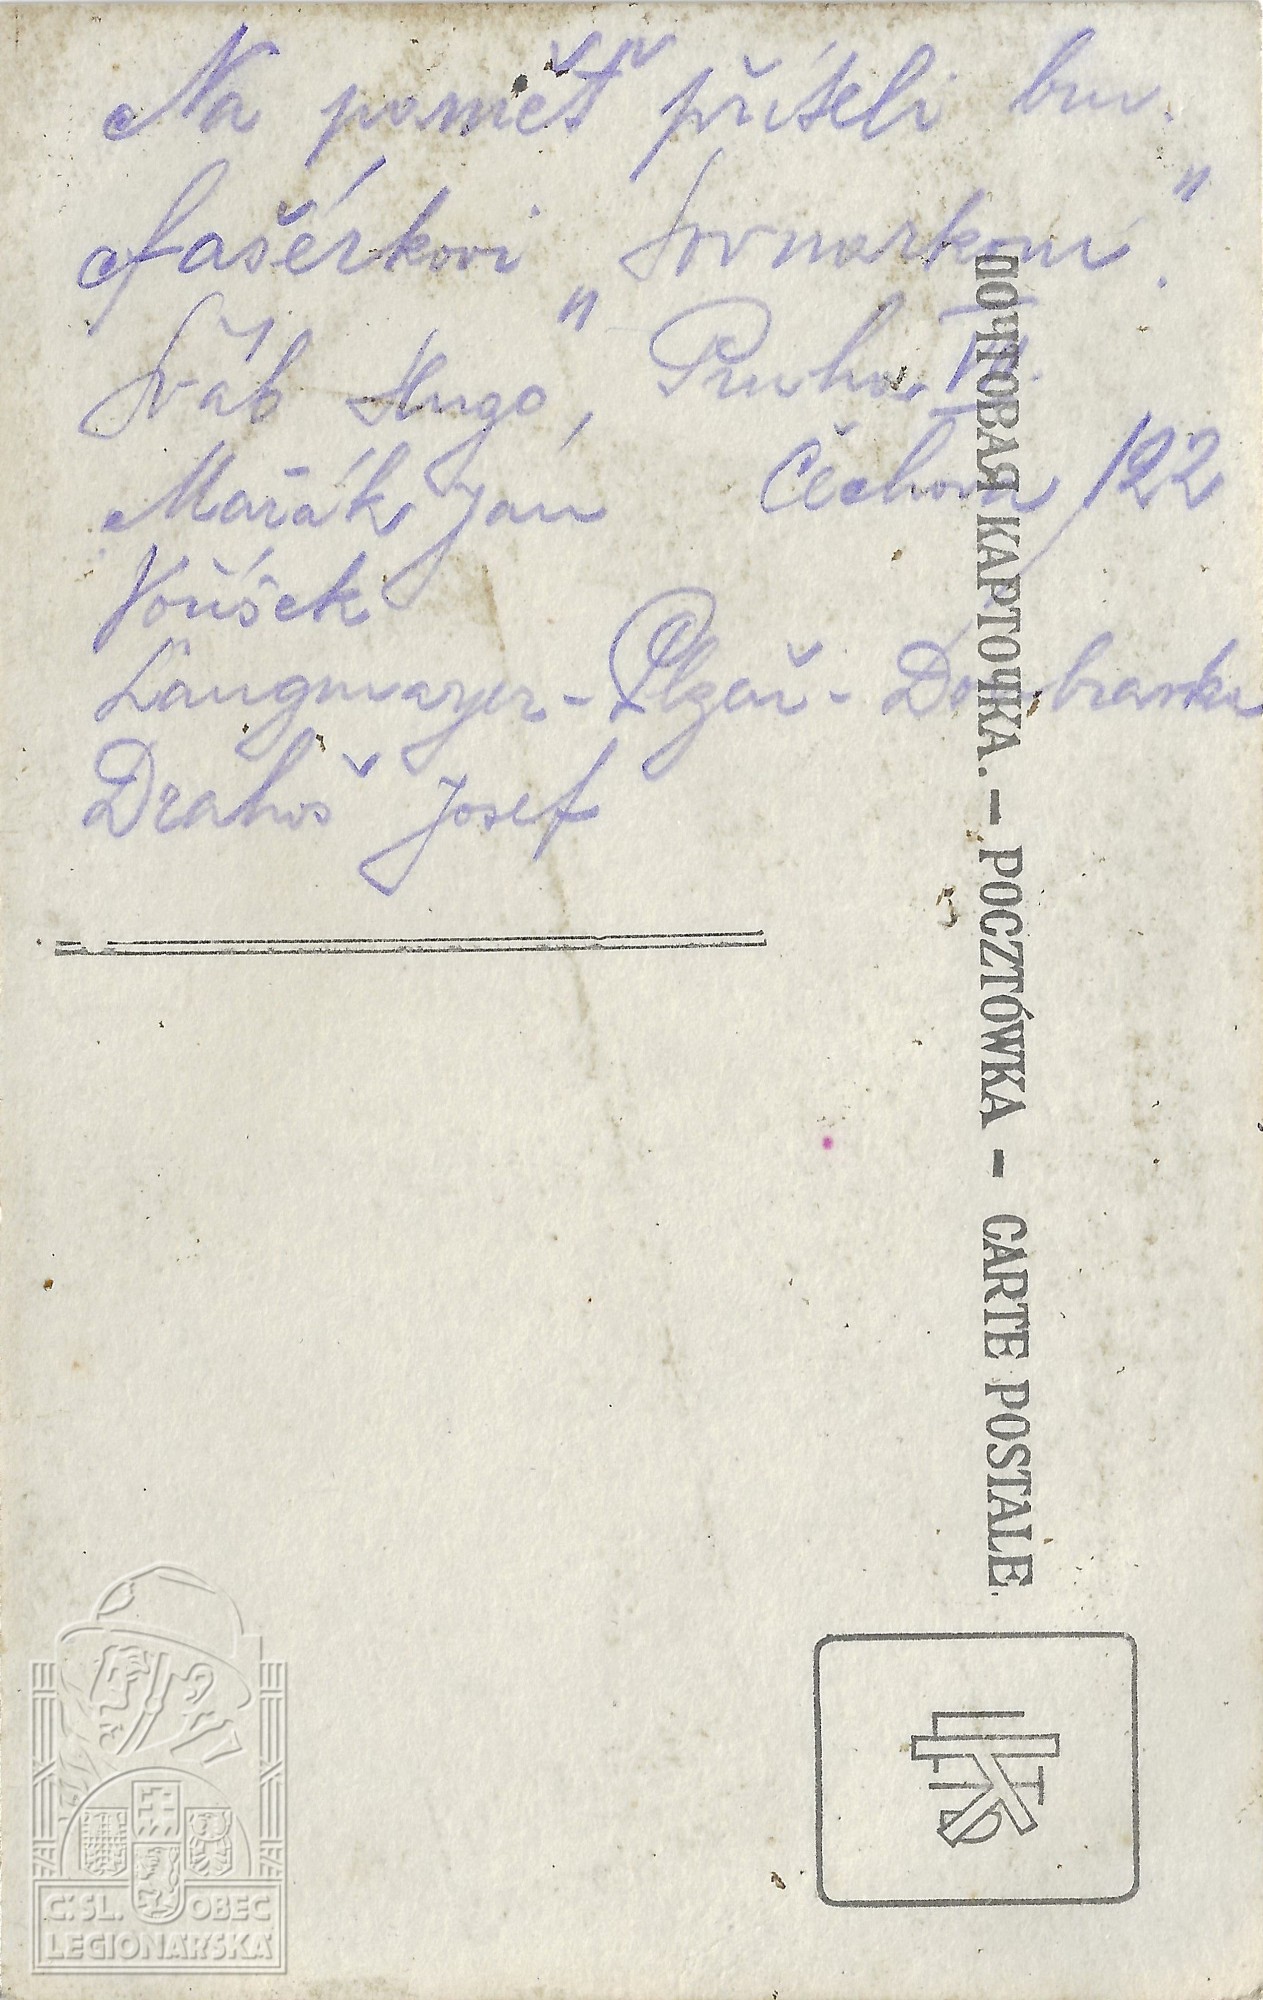 Na paměť příteli br.
Fašérkovi „Sovnarkom."
Šváb Hugo, Praha VII.
Mařák Jan Čechova 122
Voříšek
Langmayer - Plzeň - Doubravka
Drahoš Josef
ПОЧТОВАЯ КАРТОЧКА. — POCZTÓWKA — CARTE POSTALE.
Č.SL. OBEC
LEGIONÁŘSKÁ